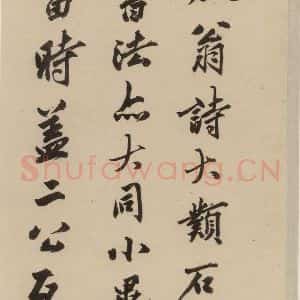 翁詩大類石
書法亦大同小異
當時蓋二公
Shufawang.CN